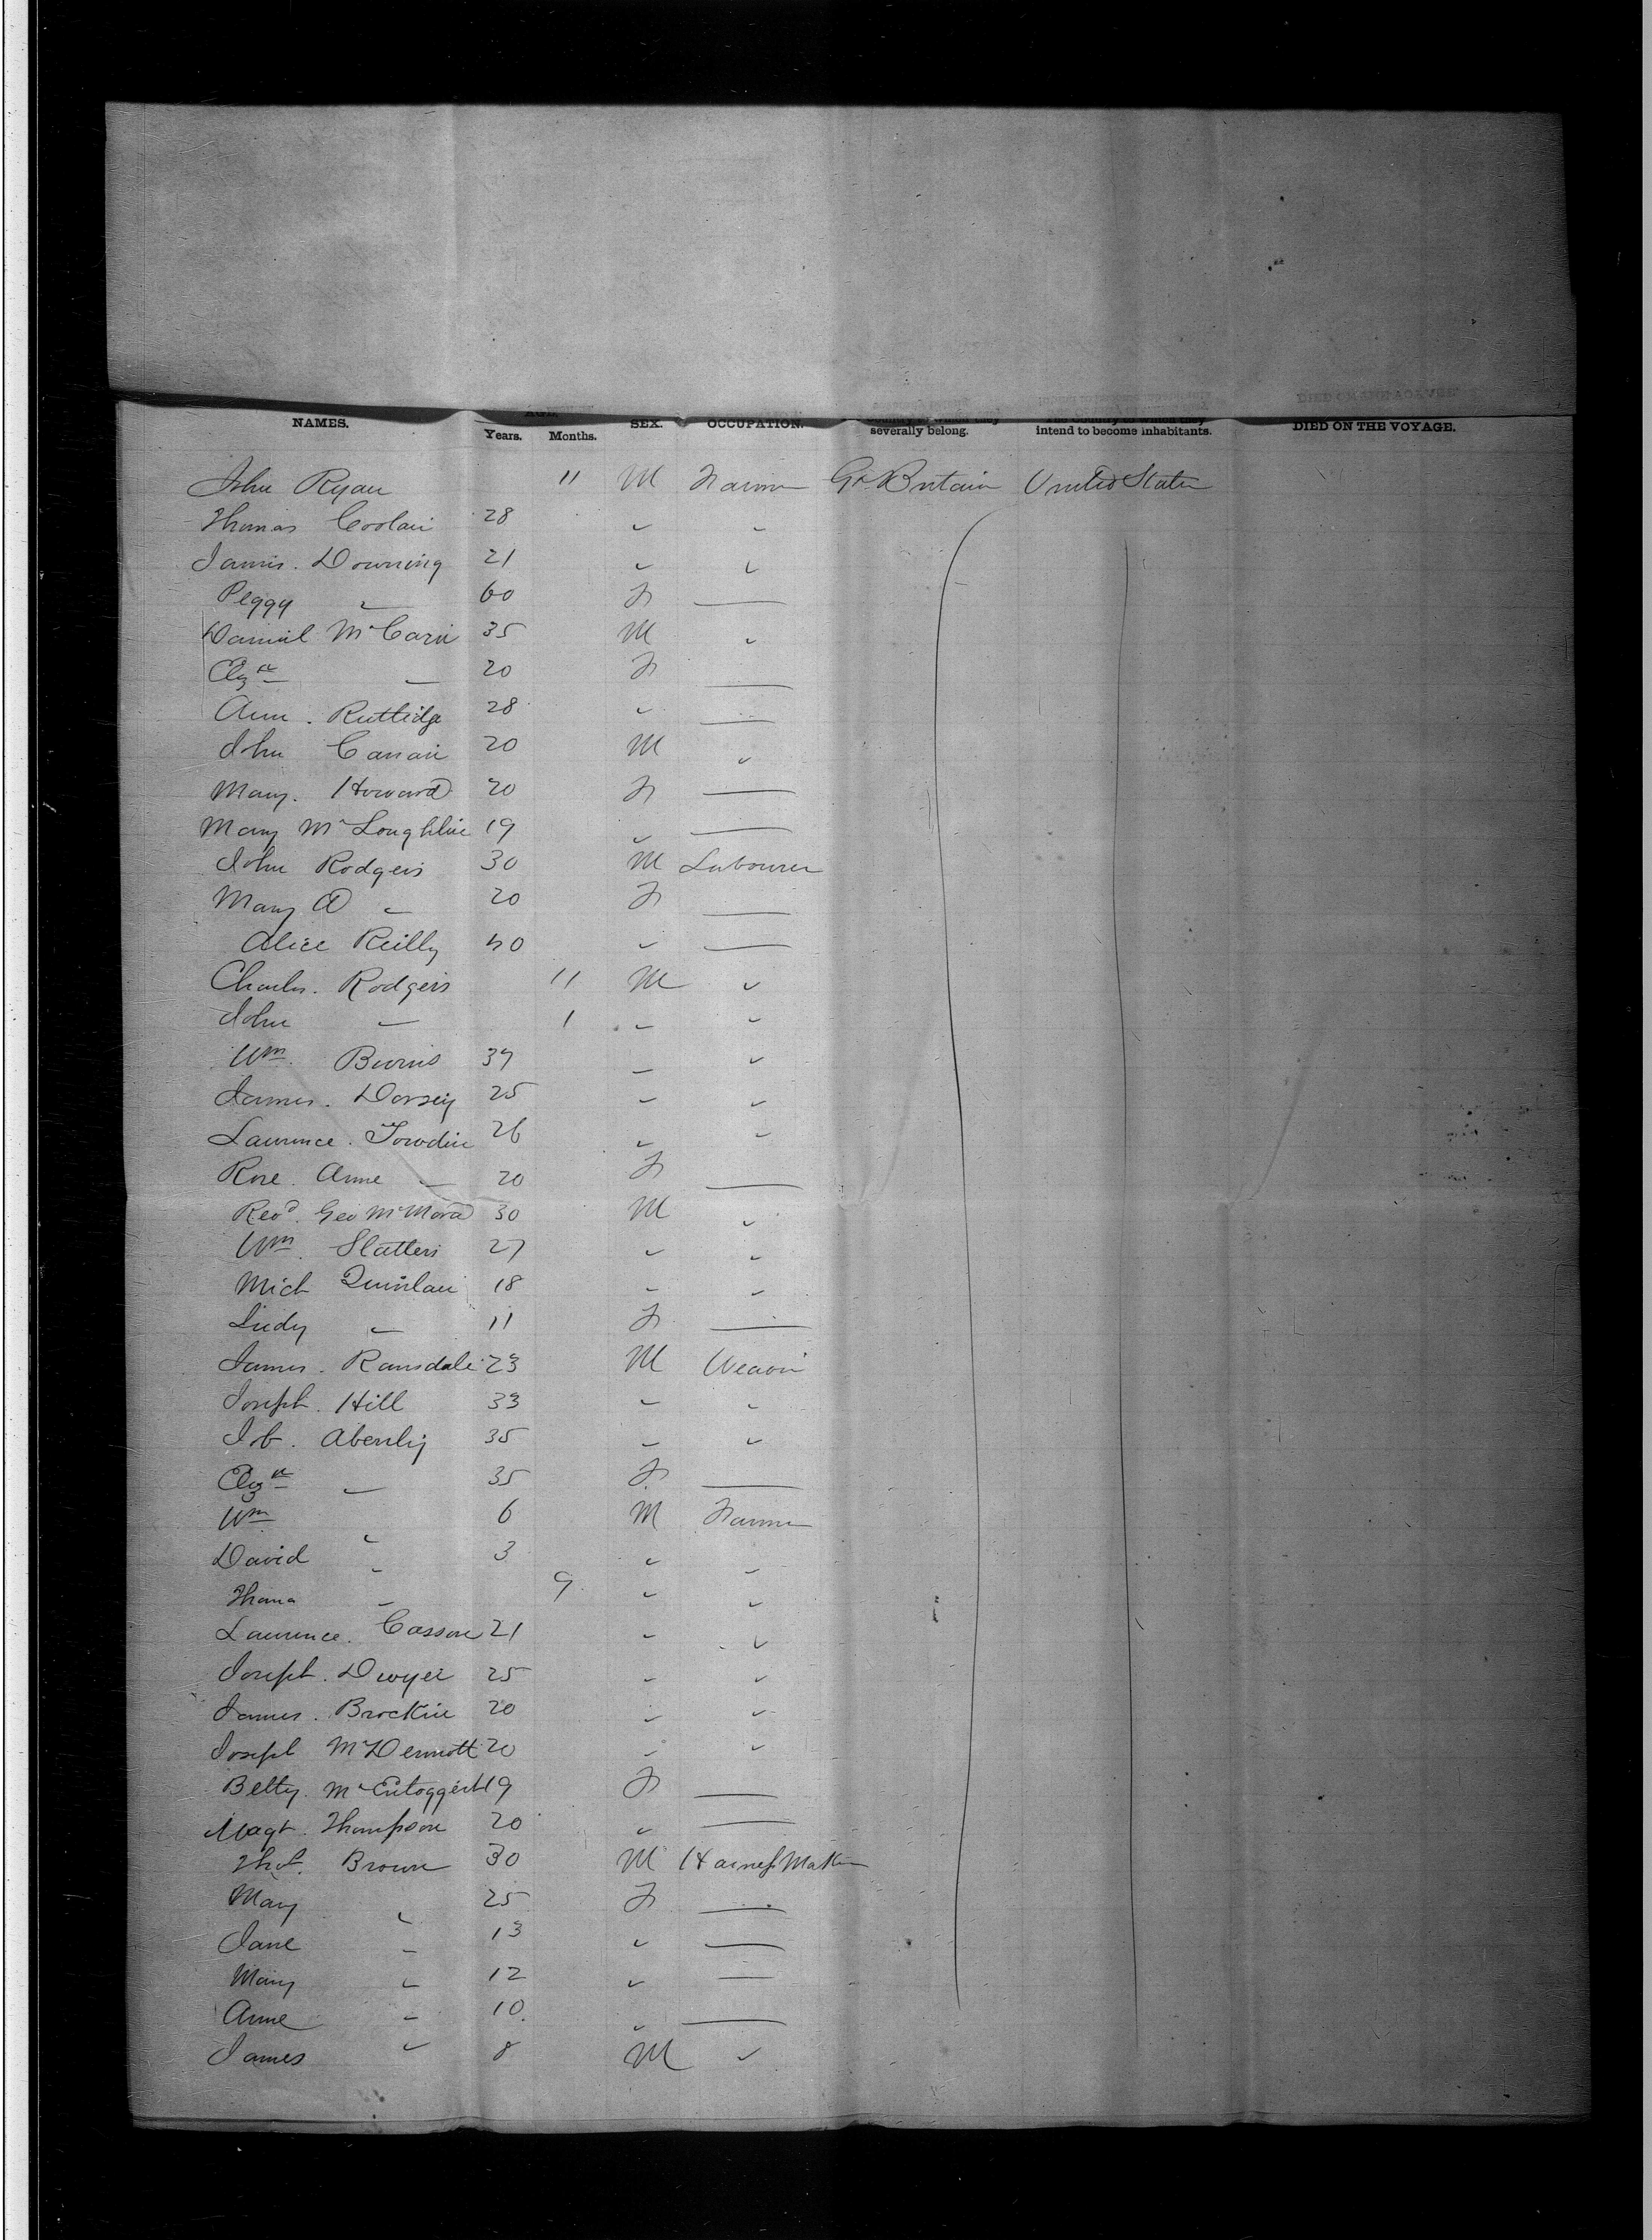 NAMES. AGE. Years. Months. SEX. OCCUPATION. Country to which they severally belong. The Country to which they intend to become inhabitants. DIED ON THE VOYAGE.
John Ryan 11 M Farmer Gt Britain United States
Thomas 28 " "
James Downing 21 " "
Peggy " 60 F —
Daniel 35 M "
Eliz " 20 F —
Ann Rutlidge 28 " —
John 20 M "
Mary Howard 20 F —
Mary McLoughlin 19 " —
John Rodgers 30 M Labourer
Mary A " 20 F —
Alice Reilly 40 " —
Charles Rodgers 11 M "
John " 1 " "
Wm Burns 37 " "
James Dorsey 25 " "
Laurence 26 " "
Rose Anne " 20 F —
Revd Geo 30 M "
Wm Slattery 27 " "
Mich Quinlan 18 " "
" 11 F —
James Ransdale 23 M Weaver
Joseph Hill 33 " "
35 " "
Eliz " 35 F —
Wm " 6 M Farmer
David " 3 " "
" 9 " "
Laurence 21 " "
Joseph Dwyer 25 " "
James 20 " "
Joseph McDermott 20 " "
Betty 19 F —
Magt Thompson 20 " —
Thos Brown 30 M Harness Maker
Mary " 25 F —
Jane " 13 " —
Mary " 12 " —
Anne " 10 " —
James " 8 M "